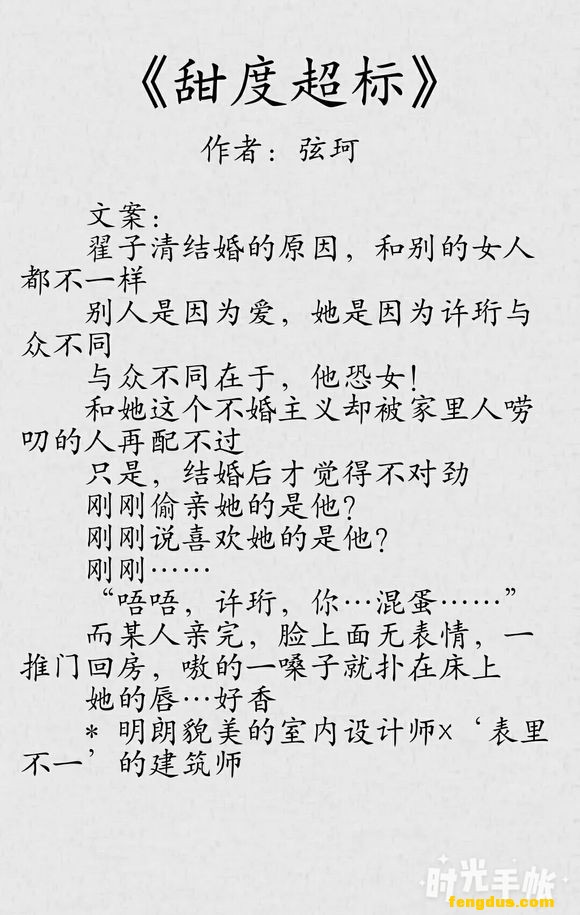 《甜度超标》
作者：弦珂
文案：
翟子清结婚的原因，和别的女人
都不一样
别人是因为爱，她是因为许珩与
众不同
与众不同在于，他恐女！
和她这个不婚主义却被家里人唠
叨的人再配不过
只是，结婚后才觉得不对劲
刚刚偷亲她的是他？
刚刚说喜欢她的是他？
刚刚……
“唔唔，许珩，你…混蛋……”
而某人亲完，脸上面无表情，一
推门回房，嗷的一嗓子就扑在床上
她的唇…好香
* 明朗貌美的室内设计师x‘表里
不一’的建筑师
时光手帐
fengdus.com